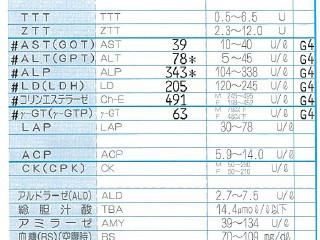 TTT TTT 0.5～6.5 U
ZTT ZTT 2.3～12.0 U
#AST(GOT) AST 39 10～40 U/ℓ G4
#ALT(GPT) ALT 78* 5～45 U/ℓ G4
#ALP ALP 343* 104～338 U/ℓ G4
#LD(LDH) LD 205 120～245 U/ℓ G4
#コリンエステラーゼ Ch-E 491 U/ℓ G4
#γ-GT(γ-GTP) γ-GT 63 U/ℓ G4
LAP LAP 30～78 U/ℓ
ACP ACP 5.9～14.0 U/ℓ
CK(CPK) CK U/ℓ
アルドラーゼ(ALD) ALD 2.7～7.5 U/ℓ
総胆汁酸 TBA 14.4μmoℓ/ℓ以下
アミラーゼ AMY 39～134 U/ℓ
血糖(BS)(空腹時) BS 70～109 mg/dℓ